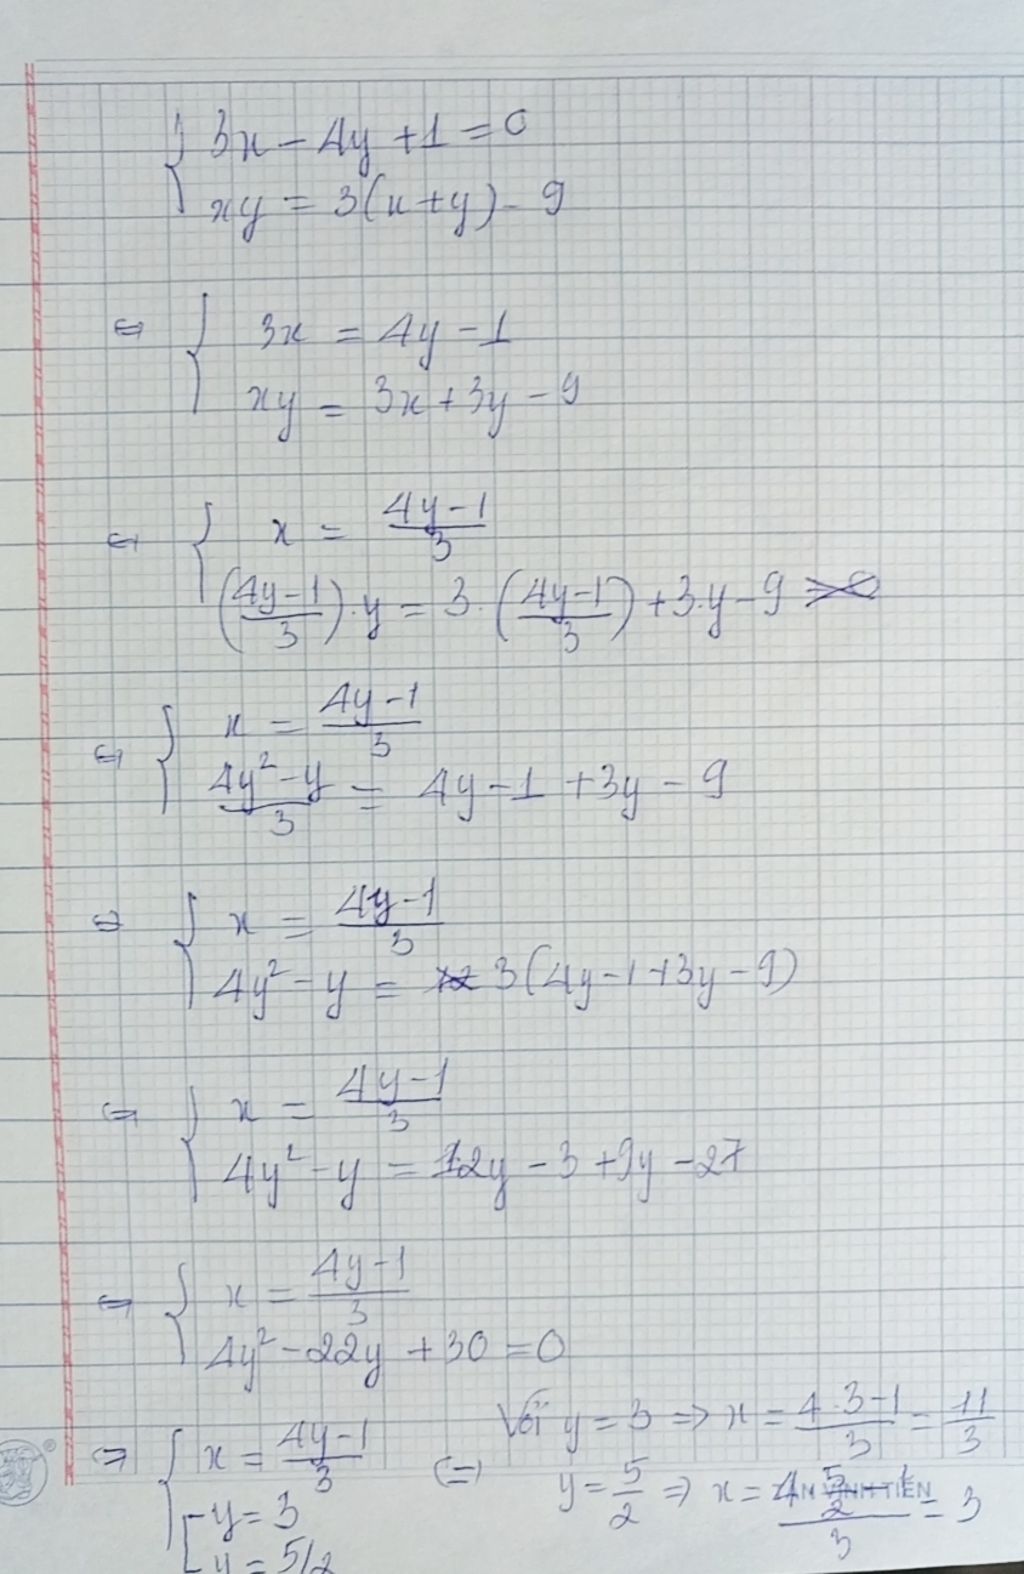 { 3x - 4y + 1 = 0
xy = 3(x+y) - 9
⇔ { 3x = 4y - 1
xy = 3x + 3y - 9
⇔ { x = (4y-1)/3
((4y-1)/3).y = 3.((4y-1)/3) + 3.y - 9
⇔ { x = (4y-1)/3
(4y² - y)/3 = 4y - 1 + 3y - 9
⇔ { x = (4y-1)/3
4y² - y = 3(4y - 1 + 3y - 9)
⇔ { x = (4y-1)/3
4y² - y = 12y - 3 + 9y - 27
⇔ { x = (4y-1)/3
4y² - 22y + 30 = 0
⇔ { x = (4y-1)/3
[ y = 3
y = 5/2
(=) Với y = 3 => x = (4.3-1)/3 = 11/3
y = 5/2 => x = (4 5/2 - 1)/3 = 3